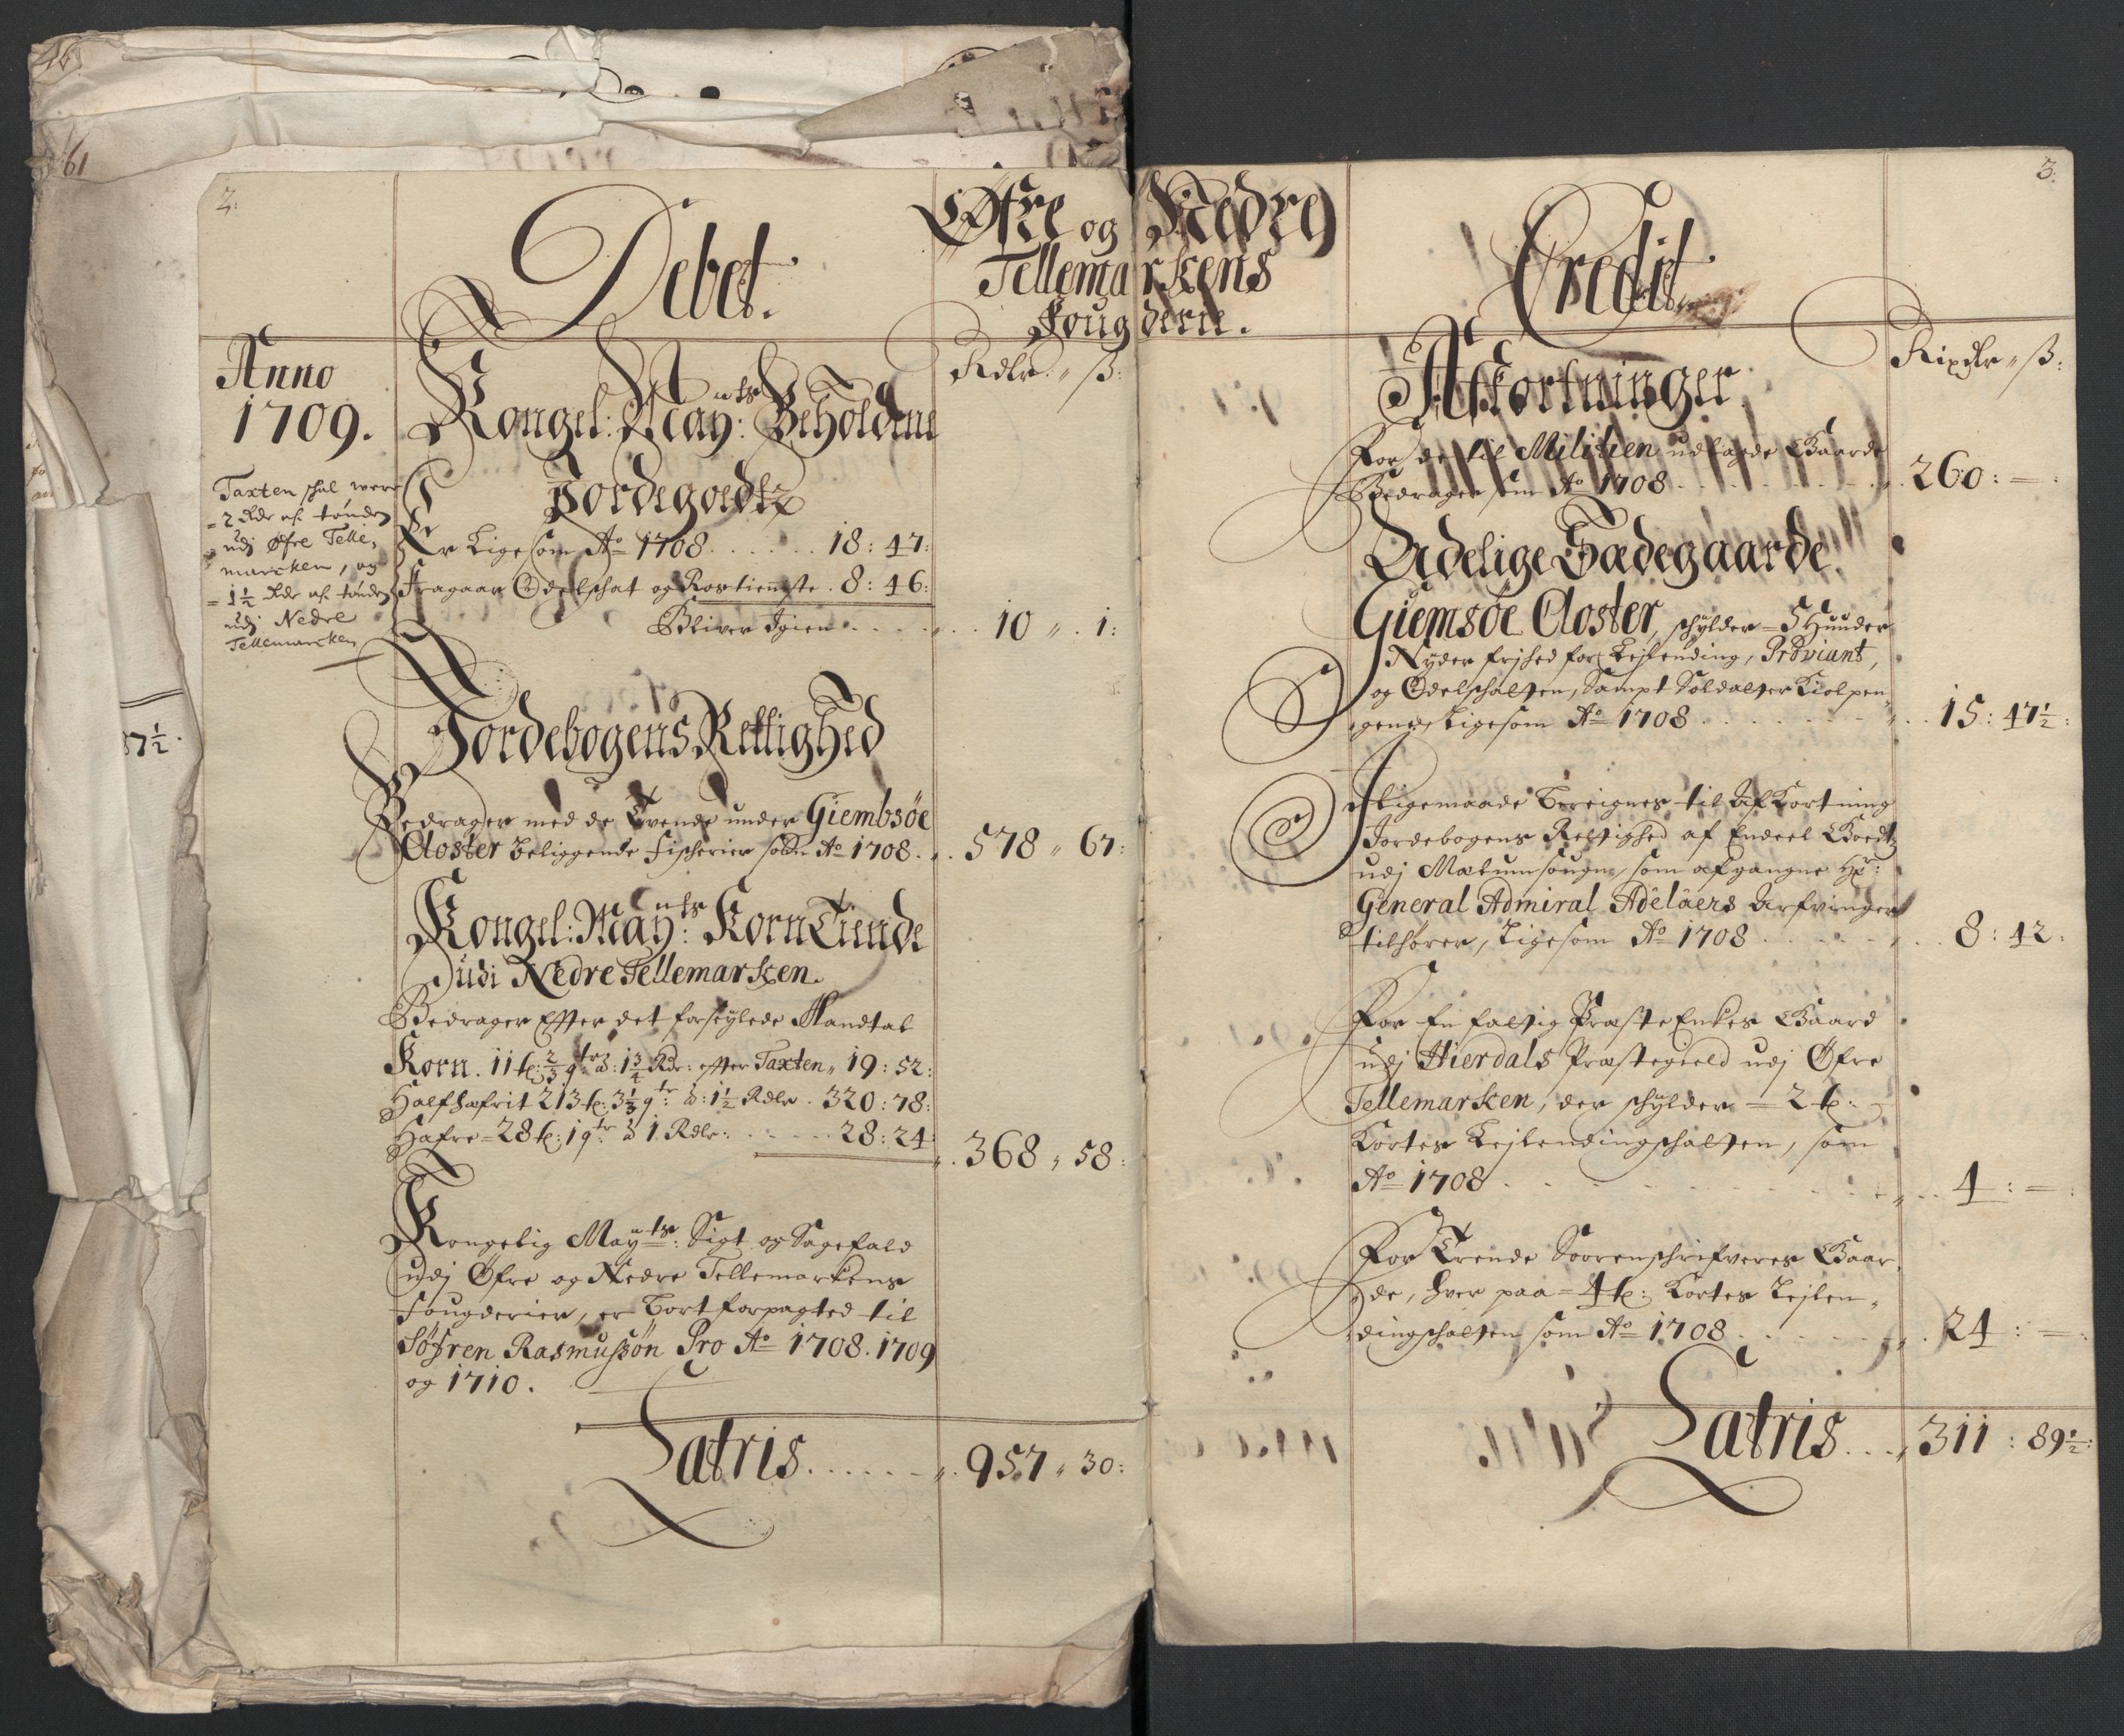 46
61
7½.
2:
Debet.
Øfre og Nedre
Tellemarkens
Fougderie.
Anno
1709.
Rdlr. " ß:
Taxten skal were
= 2 Rdr af tønden
udj Øfre Telle,
marcken, og
= 1½ Rdr af tønden
udj Nedre
Tellemarcken
Kongel: May:ts Beholdene
Jordegoedtz
Er Ligesom Ao 1708 . . . . . . 18: 47:
Fragaar Odelschat og Rostienneste . 8: 46:
Bliver Igien . . . . . 10 " . 1:
Jordebogens Rettighed
Bedrager med de Tvende under Giembsöe
Closter beliggende fischerier som Ao 1708 . . 578 " 67:
Kongel: May:ts Korn Tiende
udi Nedre Tellemarken.
Bedrager Effter det Mandtal
Korn. 11 t: ⅔ qtr à: 1¾ Rdr: effter Taxten " 19: 52:
Halfhafrit 213 t: 3⅓ qtr: à: 1½ Rdlr . 320: 78:
Hafre = 28 t: 1 qtr à 1. Rdlr: . . . . . 28: 24:
. 368 " 58:
Kongelig Mayts: Sigt og Sagefald
udj Øfre og Nedre Tellemarkens
fougderier, er bortforpagted til
Söfren Rasmussön Pro Ao 1708. 1709
og 1710.
Latris . . . . . . 957 " 30:
3:
Credit
Rixdlr " ß:
Afkortninger
For de til Militien udlagde Gaarde
Bedrager som Ao 1708 . . . . . . 260: =:
Adelige Sædegaarde.
Giemsöe Closter, schylder = 5 Hunder
Nyder frihed for Lejlending, Proviant,
og Odelschatten, Sampt Soldatter
Ligesom Ao 1708 . . . . . . 15: 47½:
Iligemaade Bereignes til Afkortning
Jordebogens Rettighed af Endeel Goedtz
udj Mælumsougn, som afgangne Hr:
General Admiral Adelaers Arfvinger
tilhører, Ligesom Ao 1708 . . . . . 8: 42:
For En fattig Præste Enkes Gaard
udj Hierdals Præstegield udj Øfre
Tellemarken, der schylder = 2 t: -
Kortes Lejlendingschatten, som
Ao 1708 . . . . . . . 4: =:
For Trende Soorenschrifveres Gaar,
de, hver paa = 4 t: Kortes Lejlen,
dingschatten som Ao 1708 . . . . . 24: =:
Latris . . . 311: 89½: